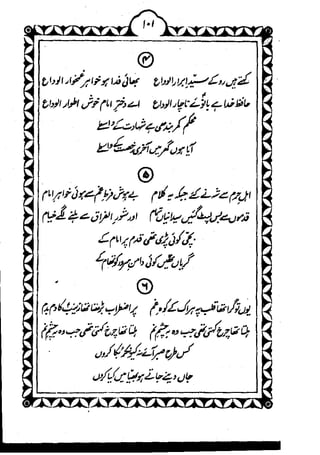 ۱۰۱
۴
کہتے ہیں رو کے سید ابرار الوداع بھائی فدا ہو خواہر غمخوار الوداع
حافظ خدا ہے بانوئے ناچار الوداع اے دختر امام خوش اطوار الوداع
محکم کمر بندھی ہے شہادت کے واسطے
آیا ہوں گھر میں آخری رخصت کے واسطے
۵
اہل حرم سے شہ نے کئے جبکہ یہ کلام بے ہوش فرط غم سے ہوئی خواہر امام
قدموں سے بس لپٹ گئیں سیدانیاں تمام اور شور الفراق سے ہلنے لگے خیام
بچی کوئی پڑی تھی قدم پر امام کے
گریاں تھیں کوئی دامن سرور کو تھام کے
۶
یوں تو گرا تھا قلب پہ ہر اک کے کوہ غم پر اضطراب بڑھتا تھا زینب کا دم بدم
ہلتا تھا چرخ کہتی تھی جب وہ بہ چشم نم ہلتا تھا چرخ کہتی تھی جب وہ بہ چشم نم
کس طرح صبر آئے نہ کیونکر بکا کروں
جاں دینے جاتے ہو بھیا میں کیا کروں